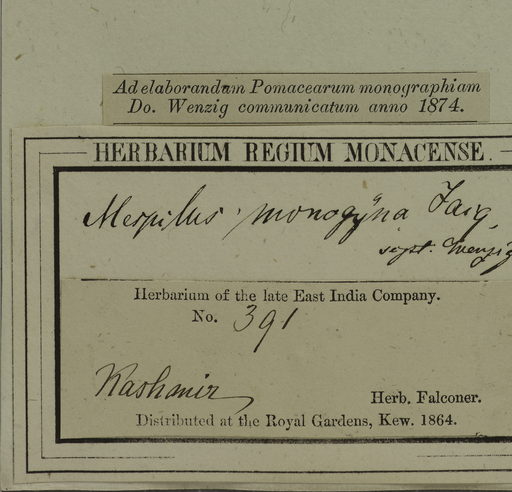 Ad elaborandum Pomacearum monographiam
Do. Wenzig communicatum anno 1874.
HERBARIUM REGIUM MONACENSE.
Mespilus monogyna
Wenzig
Herbarium of the late East India Company.
No. 391
Kashmir
Herb. Falconer.
Distributed at the Royal Gardens, Kew. 1864.